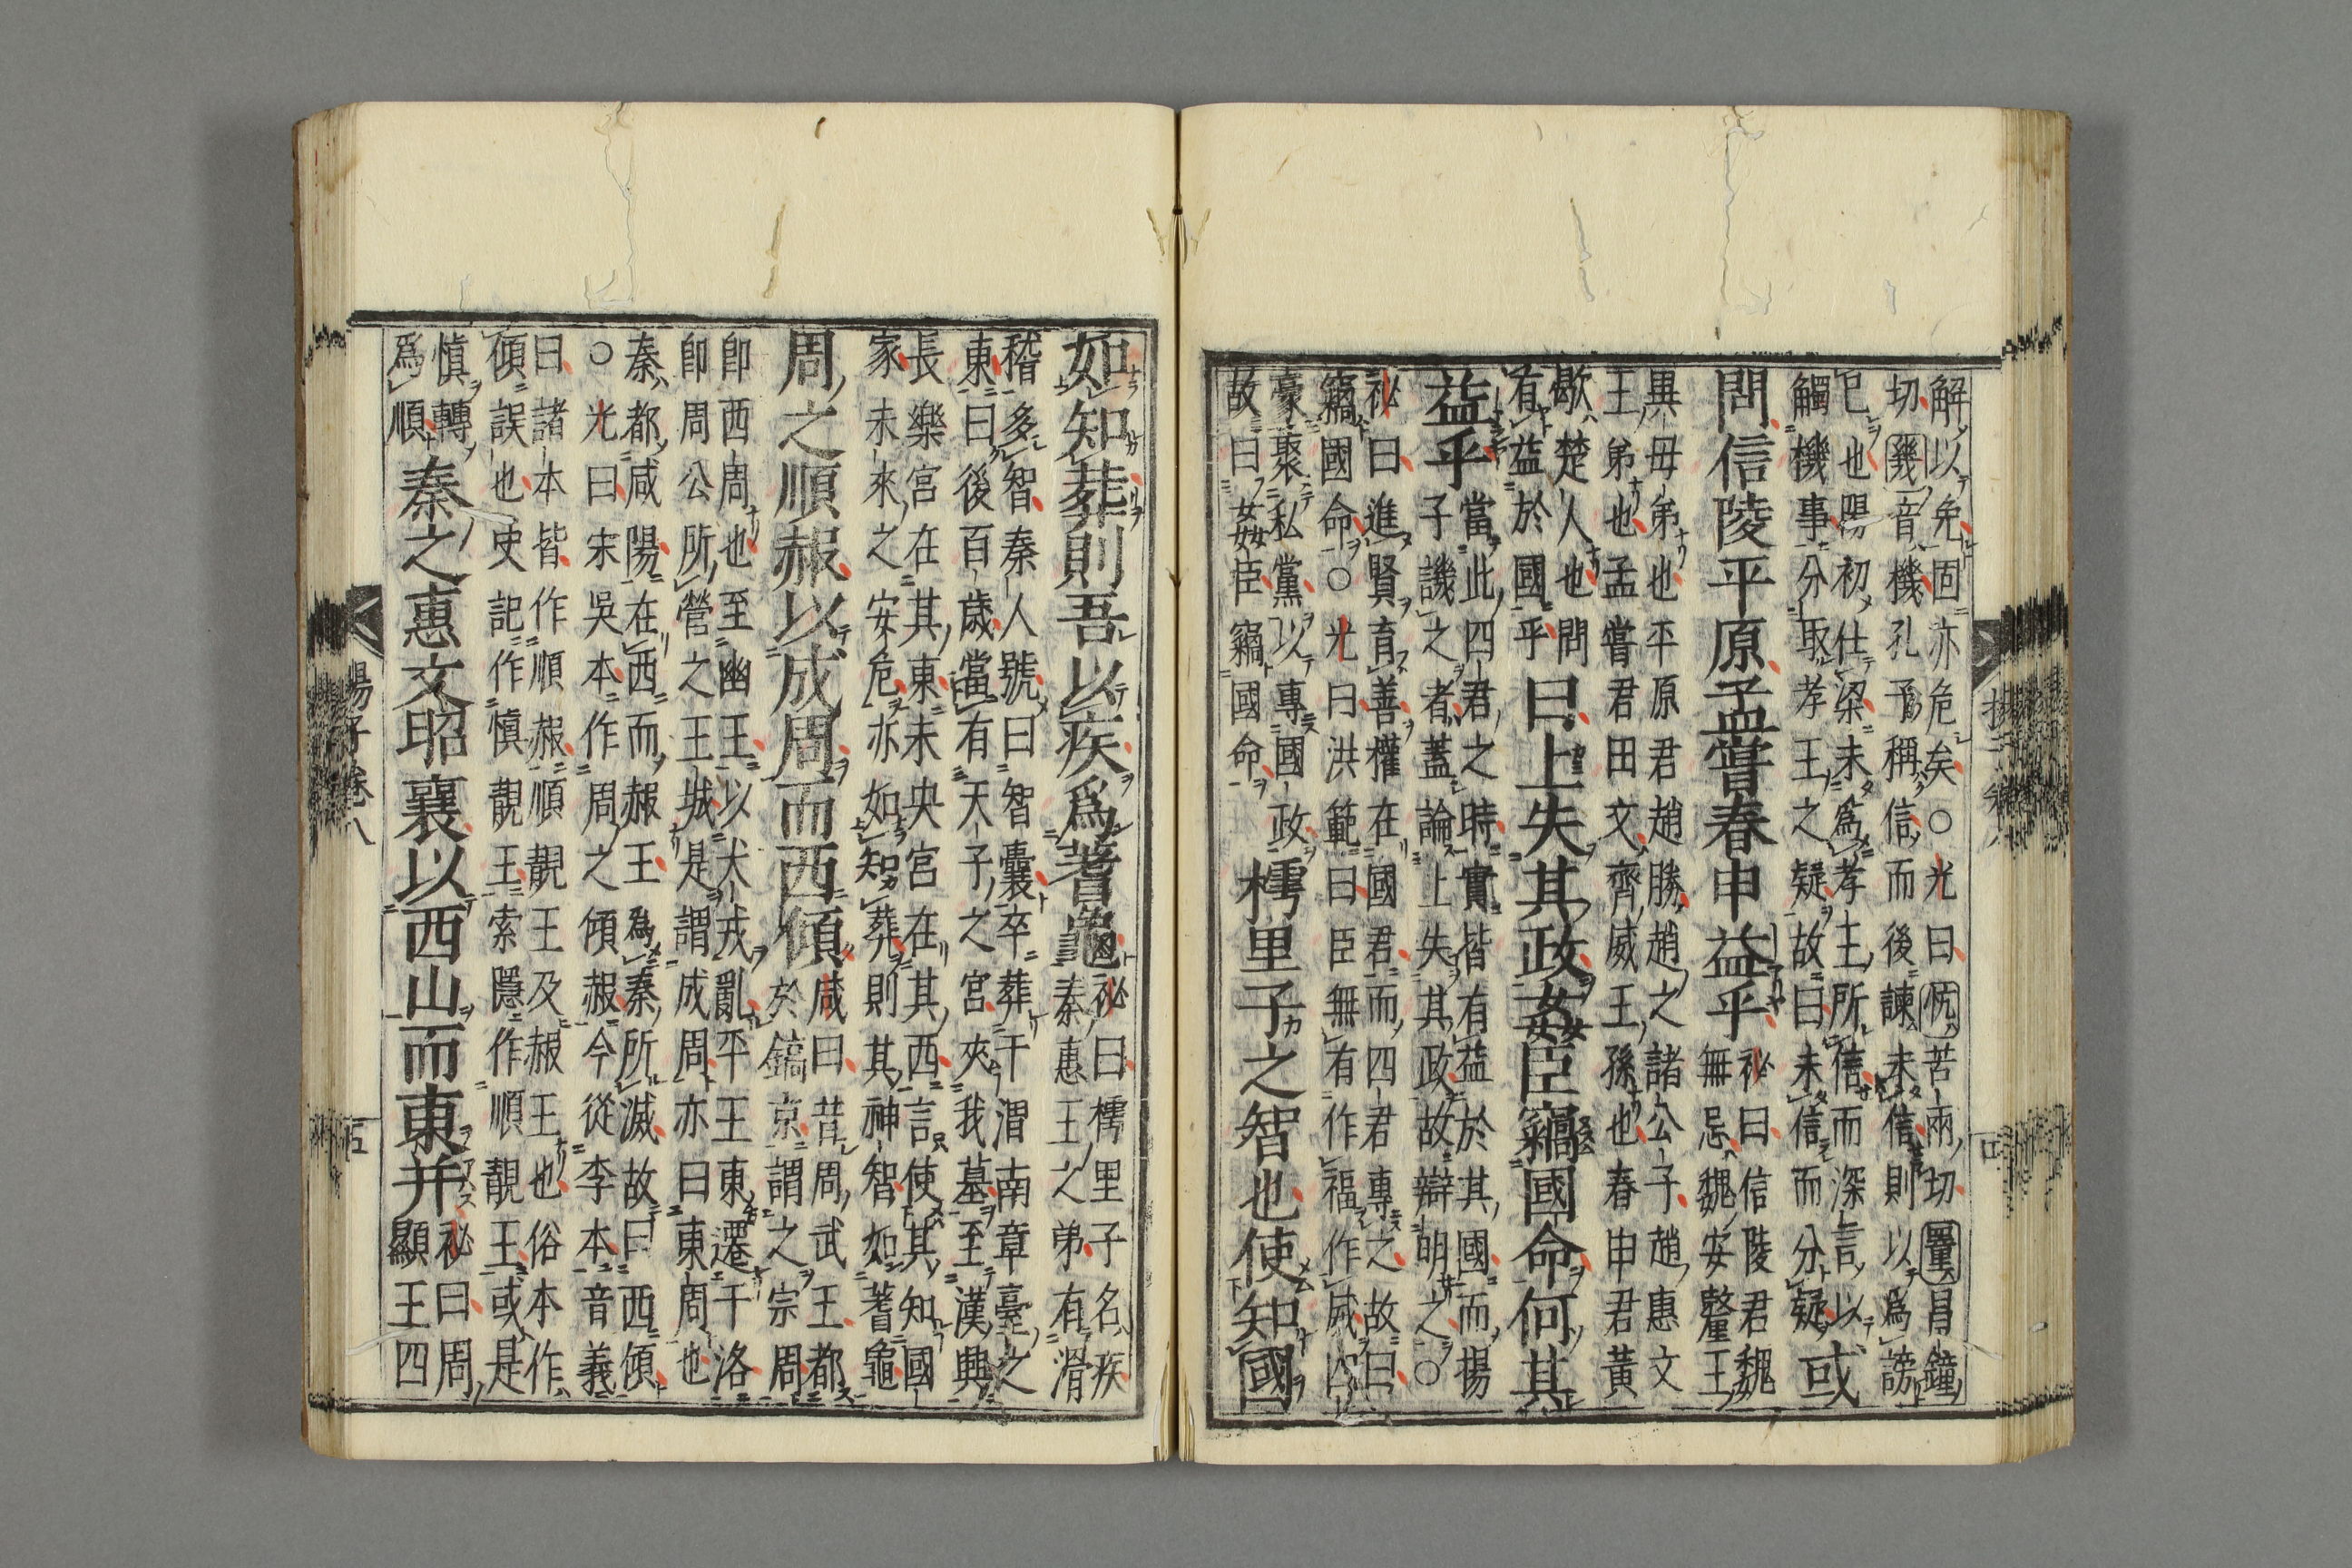 解以免固亦危矣○光曰忼苦兩切量昌鐘
切幾音機孔子稱信而後諫未信則以爲謗
已也陽初仕梁未爲孝王所信而深言以
觸機事分取孝王之疑故曰未信而分疑
或
問信陵平原孟嘗春申益乎
祕曰信陵君魏
無忌魏安釐王
異母弟也平原君趙勝趙之諸公子趙惠文
王弟也孟嘗君田文齊威王孫也春申君黃
歇楚人也問
有益於國乎
曰上失其政姦臣竊國命何其
益乎
當此四君之時實皆有益於其國而揚
子譏之者蓋論上失其政故辯明之○
祕曰進賢育善權在國君而四君專之故曰
竊國命○光曰洪範曰臣無有作福作威
豪聚私黨以專國政
故曰姦臣竊國命
樗里子之智也使知國
如知葬則吾以疾爲蓍龜
祕曰樗里子名疾
秦惠王之弟有滑
稽多智秦人號曰智囊卒葬于渭南章臺之
東曰後百歲當有天子之宮夾我墓至漢興
長樂宮在其東未央宮在其西言使其知國
家未來之安危亦如知葬則其神智如蓍龜
周之順赧以成周而西傾
咸曰昔周武王都
於鎬京謂之宗周
卽西周也至幽王以犬戎亂平王東遷于洛
卽周公所營之王城是謂成周亦曰東周也
秦都咸陽在西而赧王爲秦所滅故曰西傾
○光曰宋吳本作周之傾赧今從李本音義
曰諸本皆作順赧順靚王及赧王也俗本作
傾誤也史記作愼靚王索隱作順靚王或是
愼轉
爲順
秦之惠文昭襄以西山而東并
祕曰周
顯王四
揚子卷八